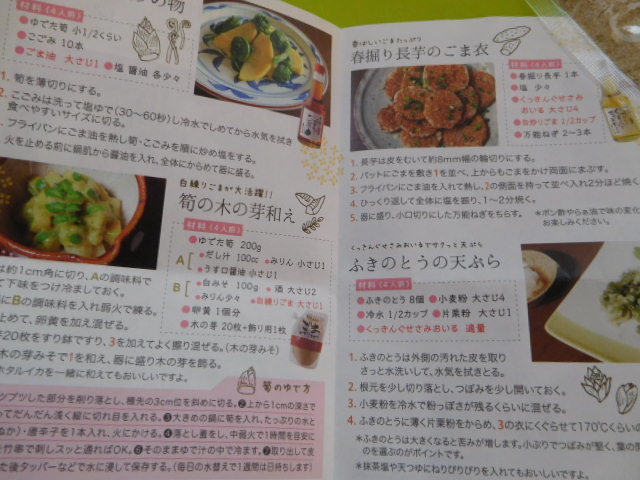 の物
材料（4人前）
●ゆでた筍 小1/2くらい
●こごみ 10本
●ごま油 大さじ1
●塩 醤油 各少々
1. 筍を薄切りにする。
2. こごみは洗って塩ゆで(30〜60秒)し冷水でしめてから水気を拭き
食べやすいサイズに切る。
フライパンにごま油を熱し筍・こごみを順に炒め塩をする。
火を止める前に鍋肌から醤油を入れ、全体にからめて器に盛る。
白練りごまが大活躍!!
筍の木の芽和え
材料（4人前）
●ゆでた筍 200g
A
●だし汁 100cc ●みりん 小さじ1
●うす口醤油 小さじ1
B
●白みそ 100g ●酒 大さじ2
●みりん少々 ●白練りごま 大さじ1
●卵黄 1個分
●木の芽 20枚+飾り用1枚
は約1cm角に切り、Aの調味料で
て下味をつけ冷ましておく。
にBの調味料を入れ弱火で練る。
止めて、卵黄を加え混ぜる。
芽20枚をすり鉢ですり、3を加えてよく擦り混ぜる。(木の芽みそ)
木の芽みそで1を和え、器に盛り木の芽を飾る。
ホタルイカを一緒に和えてもおいしいですよ。
筍のゆで方
ツブツした部分を削り落とし、穂先の3cm位を斜めに切る。❷上から1cmの深さで
ってだんだん浅く縦に切れ目を入れる。❸大きめの鍋に筍を入れ、たっぷりの水と
ぬか)・唐辛子を1本入れ、火にかける。❹落とし蓋をし、中弱火で1時間を目安に
竹串で刺しスッと通ればOK。❻そのままゆで汁の中で冷ます。❼取り出して皮
た後タッパーなどで水に浸して保存する。(毎日の水替えで1週間は日持ちします)
香ばしいごまたっぷり
春掘り長芋のごま衣
材料（4人前）
●春掘り長芋 1本
●塩 少々
●くっきんぐせさみ
おいる 大さじ4
●白炒りごま 1/2カップ
●万能ねぎ 2〜3本
1. 長芋は皮をむいて約8mm幅の輪切りにする。
2. バットにごまを敷き1を並べ、上からもごまをかけ両面にまぶす。
3. フライパンにごま油を入れて熱し、2の側面を持って並べ入れ2分ほど焼く
4. ひっくり返して全体に塩を振り、1〜2分焼く。
5. 器に盛り、小口切りにした万能ねぎをちらす。
＊ポン酢やらぁ油で味の変化
お楽しみください。
くっきんぐせさみおいるでサクっと天ぷら
ふきのとうの天ぷら
材料（4人前）
●ふきのとう 8個 ●小麦粉 大さじ4
●冷水 1/2カップ ●片栗粉 大さじ1
●くっきんぐせさみおいる 適量
1. ふきのとうは外側の汚れた皮を取り
さっと水洗いして、水気を拭きとる。
2. 根元を少し切り落とし、つぼみを少し開いておく。
3. 小麦粉を冷水で粉っぽさが残るくらいに混ぜる。
4. ふきのとうに薄く片栗粉をからめ、3の衣にくぐらせて170℃くらいの
＊ふきのとうは大きくなると苦みが増します。小ぶりでつぼみが堅く、葉の
のを選ぶのがポイントです。
＊抹茶塩や天つゆにねりびりびりを入れてもおいしいですよ。